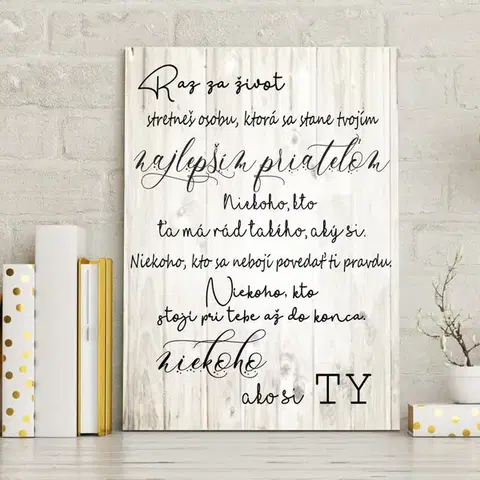 Raz za život
stretneš osobu, ktorá sa stane tvojím
najlepším priateľom
Niekoho, kto
ťa má rád takého, aký si.
Niekoho, kto sa nebojí povedať ti pravdu.
Niekoho, kto
stojí pri tebe až do konca.
niekoho
ako si TY